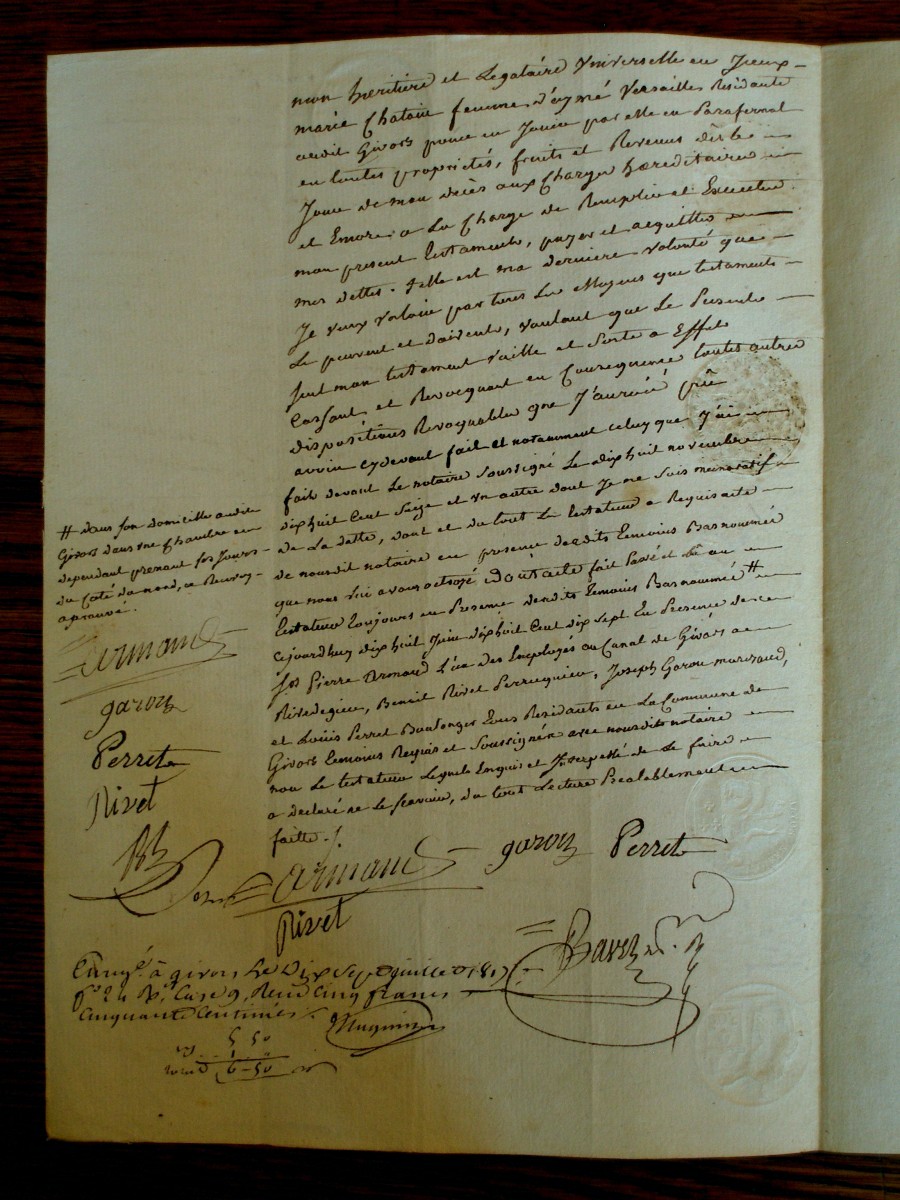 mon heritiere et Legataire Universelle
marie Chataie femme d'eymé Versailles Residante
audit Givors pour en Jouir par elle en Parafernal
en toutes proprietés, fruits et Revenus dès le
Jour de mon decès aux Charges hereditaires
et Encore a La Charge de Remplir et Executer
mon present testament, payer et aquitter
mes dettes. telle est ma derniere volonté que
Je veux valoir par tous les Moyens que testaments
Le peuvent et doivent, voulant que Le Present
Seul mon testament vaille et Sorte a Effet
Cassant et Revocquant en Consequence toutes autres
dispositions Revoquables que J'aurois pû
avoir cydevant fait et notamment celuy que J'ai
fait devant Le notaire Soussigné Le dixhuit novembre
dixhuit Cent Seize et un autre dont Je ne Suis memoratif
de La datte, dont et du tout Le testateur a Requis acte
de nousdit notaire en presence desdits temoins Basnommés
que nous lui avons octroyé dont acte fait Passé et Lû au
testateur toujours en Presence desdits temoins Basnommés #
cejourdhuy dixhuit Juin dixhuit Cent dix Sept En Presence de
Srs Pierre armand L'un Des Employés au Canal de Givors a
Rivedegier, Benoit Rivet Perruquier, Joseph Garon marchand,
et Loüis Perret Boulanger tous Residants en La Commune de
Givors temoins Requis et Soussignés avec nousdit notaire
non Le testateur Lequel Enquis et Interpellé de Le faire
a declaré ne Le Scavoir, du tout Lecture Préalablement
faitte ./.
# dans son domicille audit
Givors dans une Chambre en
dependant prenant ses Jours
du Coté du nord, ce Renvoy
aprouvé.
armand
garon
Perret
Rivet
armand
garon
Perret
Rivet
Enregé. à givors Le Dix Sept juillet 1817
fo 24 Ro Case 9, Reçu Cinq francs
Cinquante Centimes.
5 50
6-50